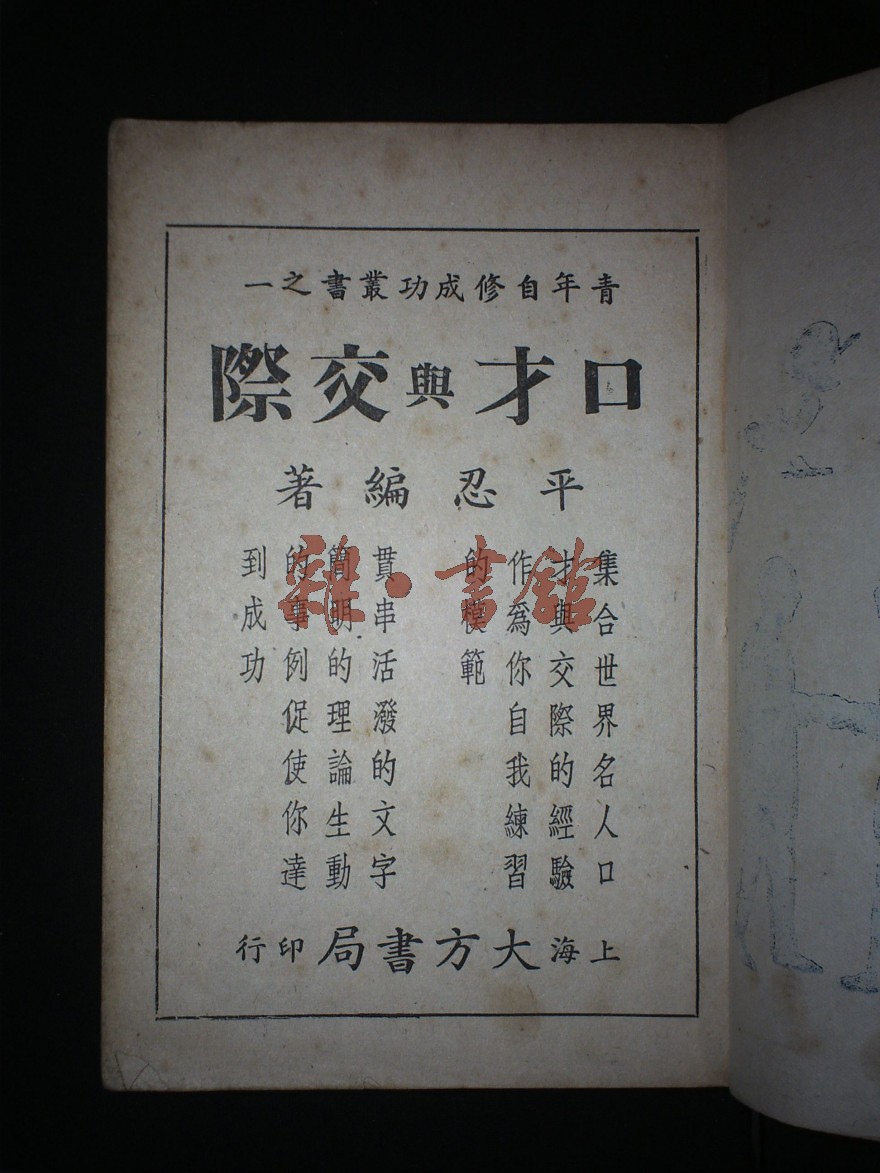 青年自修成功叢書之一
口才與交際
平忍編著
集合世界名人口
才與交際的經驗
作爲你自我練習
的模範
貫串活潑的文字
簡明的理論生動
的事例促使你達
到成功
上海大方書局印行
雜·書館